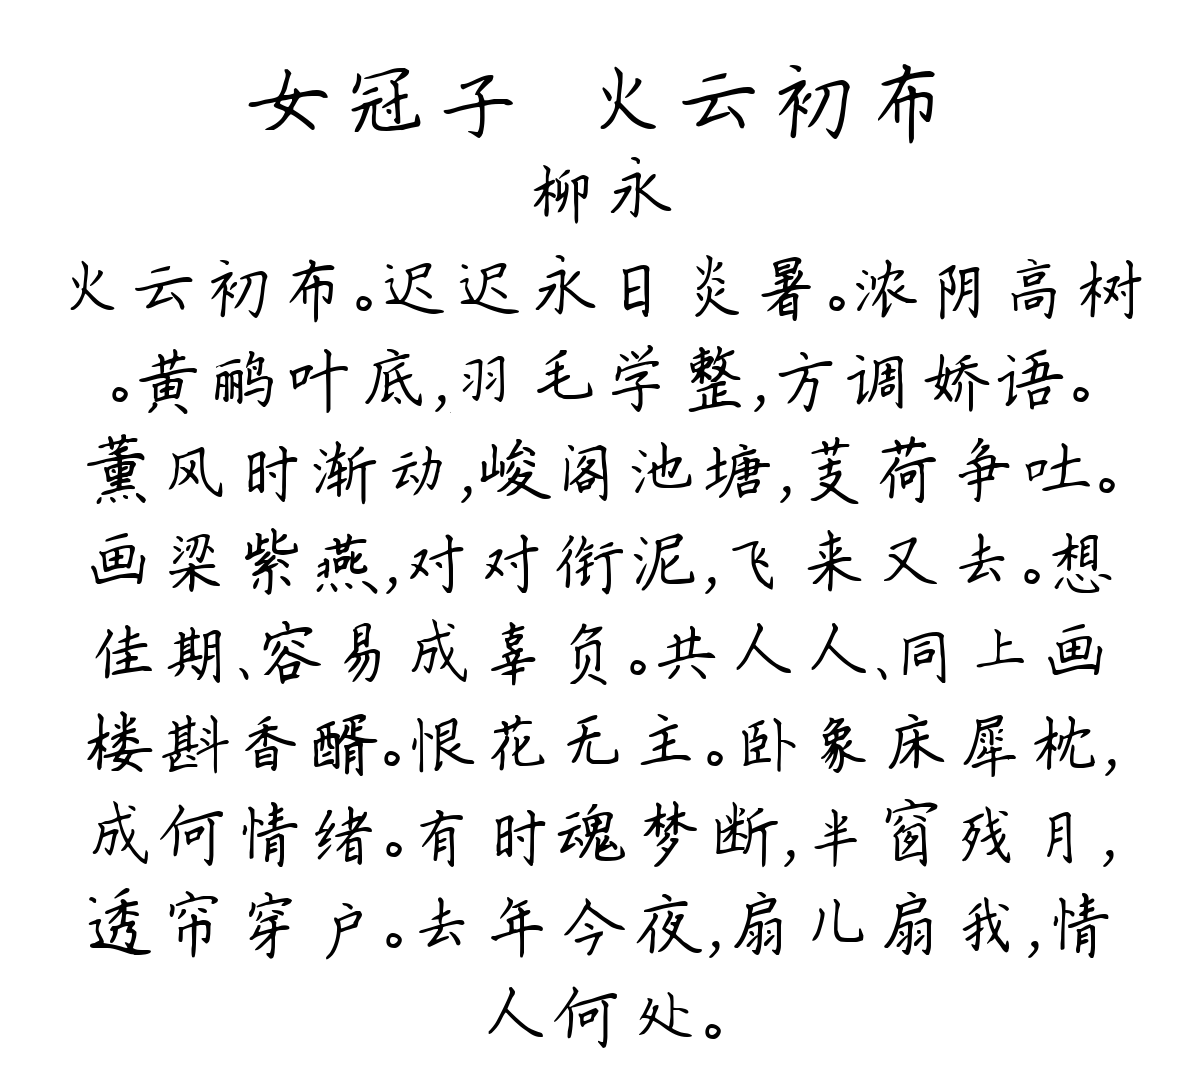 女冠子 火云初布
柳永
火云初布。迟迟永日炎暑。浓阴高树
。黄鹂叶底,羽毛学整,方调娇语。
薰风时渐动,峻阁池塘,芰荷争吐。
画梁紫燕,对对衔泥,飞来又去。想
佳期、容易成辜负。共人人、同上画
楼斟香醑。恨花无主。卧象床犀枕,
成何情绪。有时魂梦断,半窗残月,
透帘穿户。去年今夜,扇儿扇我,情
人何处。